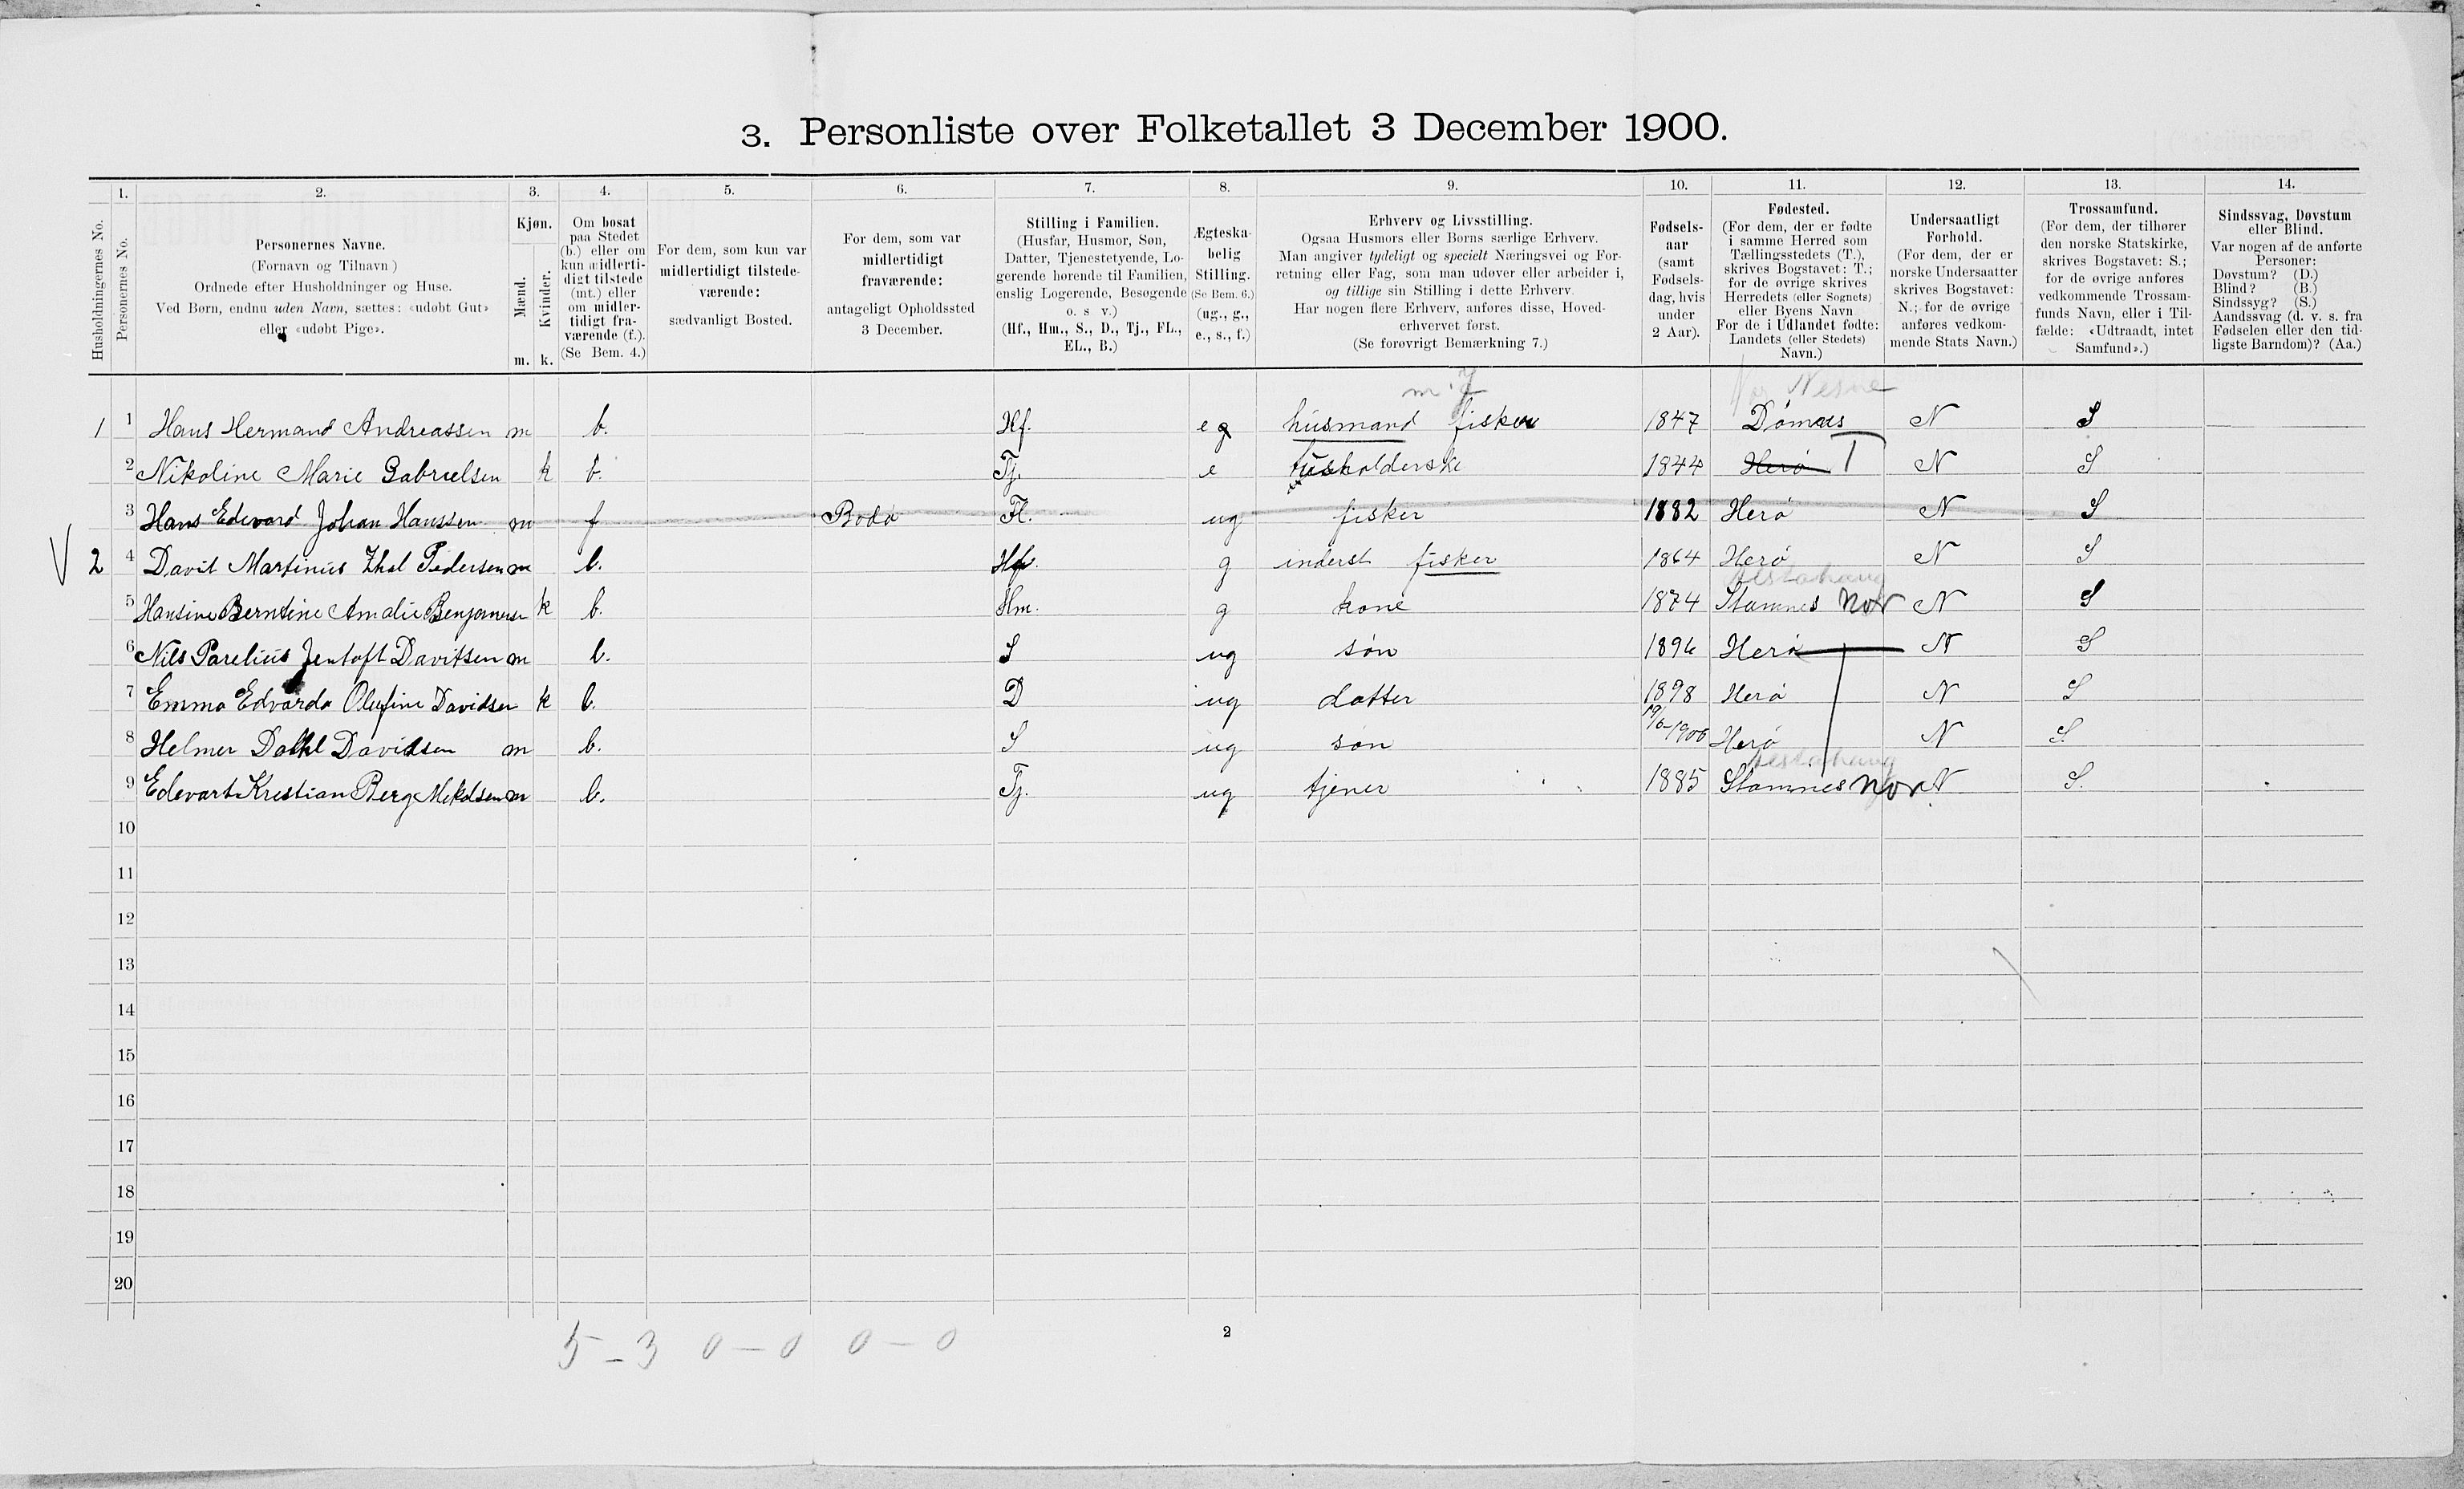 3. Personliste over Folketallet 3 December 1900.
1. 2. 3. 4. 5. 6. 7. 8. 9. 10. 11. 12. 13. 14.
Husholdningernes No.
Personernes No.
Personernes Navne.
(Fornavn og Tilnavn)
Ordnede efter Husholdninger og Huse.
Ved Børn, endnu uden Navn, sættes: «udøbt Gut»
eller «udøbt Pige».
Kjøn.
Mænd.
Kvinder.
m. k.
Om bosat
paa Stedet
(b.) eller om
kun midlerti-
digt tilstede
(mt.) eller
om midler-
tidigt fra-
værende (f.).
(Se Bem. 4.)
For dem, som kun var
midlertidigt tilstede-
værende:
sædvanligt Bosted.
For dem, som var
midlertidigt
fraværende:
antageligt Opholdssted
3 December.
Stilling i Familien.
(Husfar, Husmor, Søn,
Datter, Tjenestetyende, Lo-
gerende hørende til Familien,
enslig Logerende, Besøgende
o. s v.)
(Hf., Hm., S., D., Tj., FL.,
EL., B.)
Ægteska-
belig
Stilling.
(Se Bem. 6.)
(ug., g.,
e., s., f.)
Erhverv og Livsstilling.
Ogsaa Husmors eller Børns særlige Erhverv.
Man angiver tydeligt og specielt Næringsvei og For-
retning eller Fag, som man udøver eller arbeider i,
og tillige sin Stilling i dette Erhverv.
Har nogen flere Erhverv, anføres disse, Hoved-
erhvervet først.
(Se forøvrigt Bemærkning 7.)
Fødsels-
aar
(samt
Fødsels-
dag, hvis
under
2 Aar).
Fødested.
(For dem, der er fødte
i samme Herred som
Tællingsstedets (T.),
skrives Bogstavet: T.;
for de øvrige skrives
Herredets (eller Sognets)
eller Byens Navn
For de i Udlandet fødte:
Landets (eller Stedets)
Navn.)
Undersaatligt
Forhold.
(For dem, der er
norske Undersaatter
skrives Bogstavet:
N.; for de øvrige
anføres vedkom-
mende Stats Navn.)
Trossamfund.
(For dem, der tilhører
den norske Statskirke,
skrives Bogstavet: S.;
for de øvrige anføres
vedkommende Trossam-
funds Navn, eller i Til-
fælde: «Udtraadt, intet
Samfund».)
Sindssvag, Døvstum
eller Blind.
Var nogen af de anførte
Personer:
Døvstum? (D.)
Blind? (B.)
Sindssyg? (S.)
Aandssvag (d. v. s. fra
Fødselen eller den tid-
ligste Barndom)? (Aa.)
Nesne
1 1 Hans Hermand Andreassen m b. Hf. e g husmand fisker 1847 Dømæs N S
2 Nikoline Marie Gabrielsen k b. Tj. e husholderske 1844 Herø T N S
3 Hans Edevard Johan Hanssen m f Bodø Fl. ug fisker 1882 Herø N S
2 4 Davit Martinius Pedersen m b. Hf. g inderst fisker 1864 Herø N S
Alstahaug
5 Hansine Berntine Amalie k b. Hm. g kone 1874 Stamnes Nor N S
6 Nils Parelius Jentoft Davitsen m b. S ug søn 1896 Herø T N S
7 Emma Edvarda Olufine Davidsen k b. D ug datter 1898 Herø N S
8 Helmer Dahl Davidsen m b. S ug søn 19/6-1900 Herø N S.
Alstahaug
9 Edevart Kristian Berg m b. Tj. ug tjener 1885 Stamnes Nor N S.
10
11
12
13
14
15
16
17
18
19
20
5 – 3 0 – 0 0 – 0
2